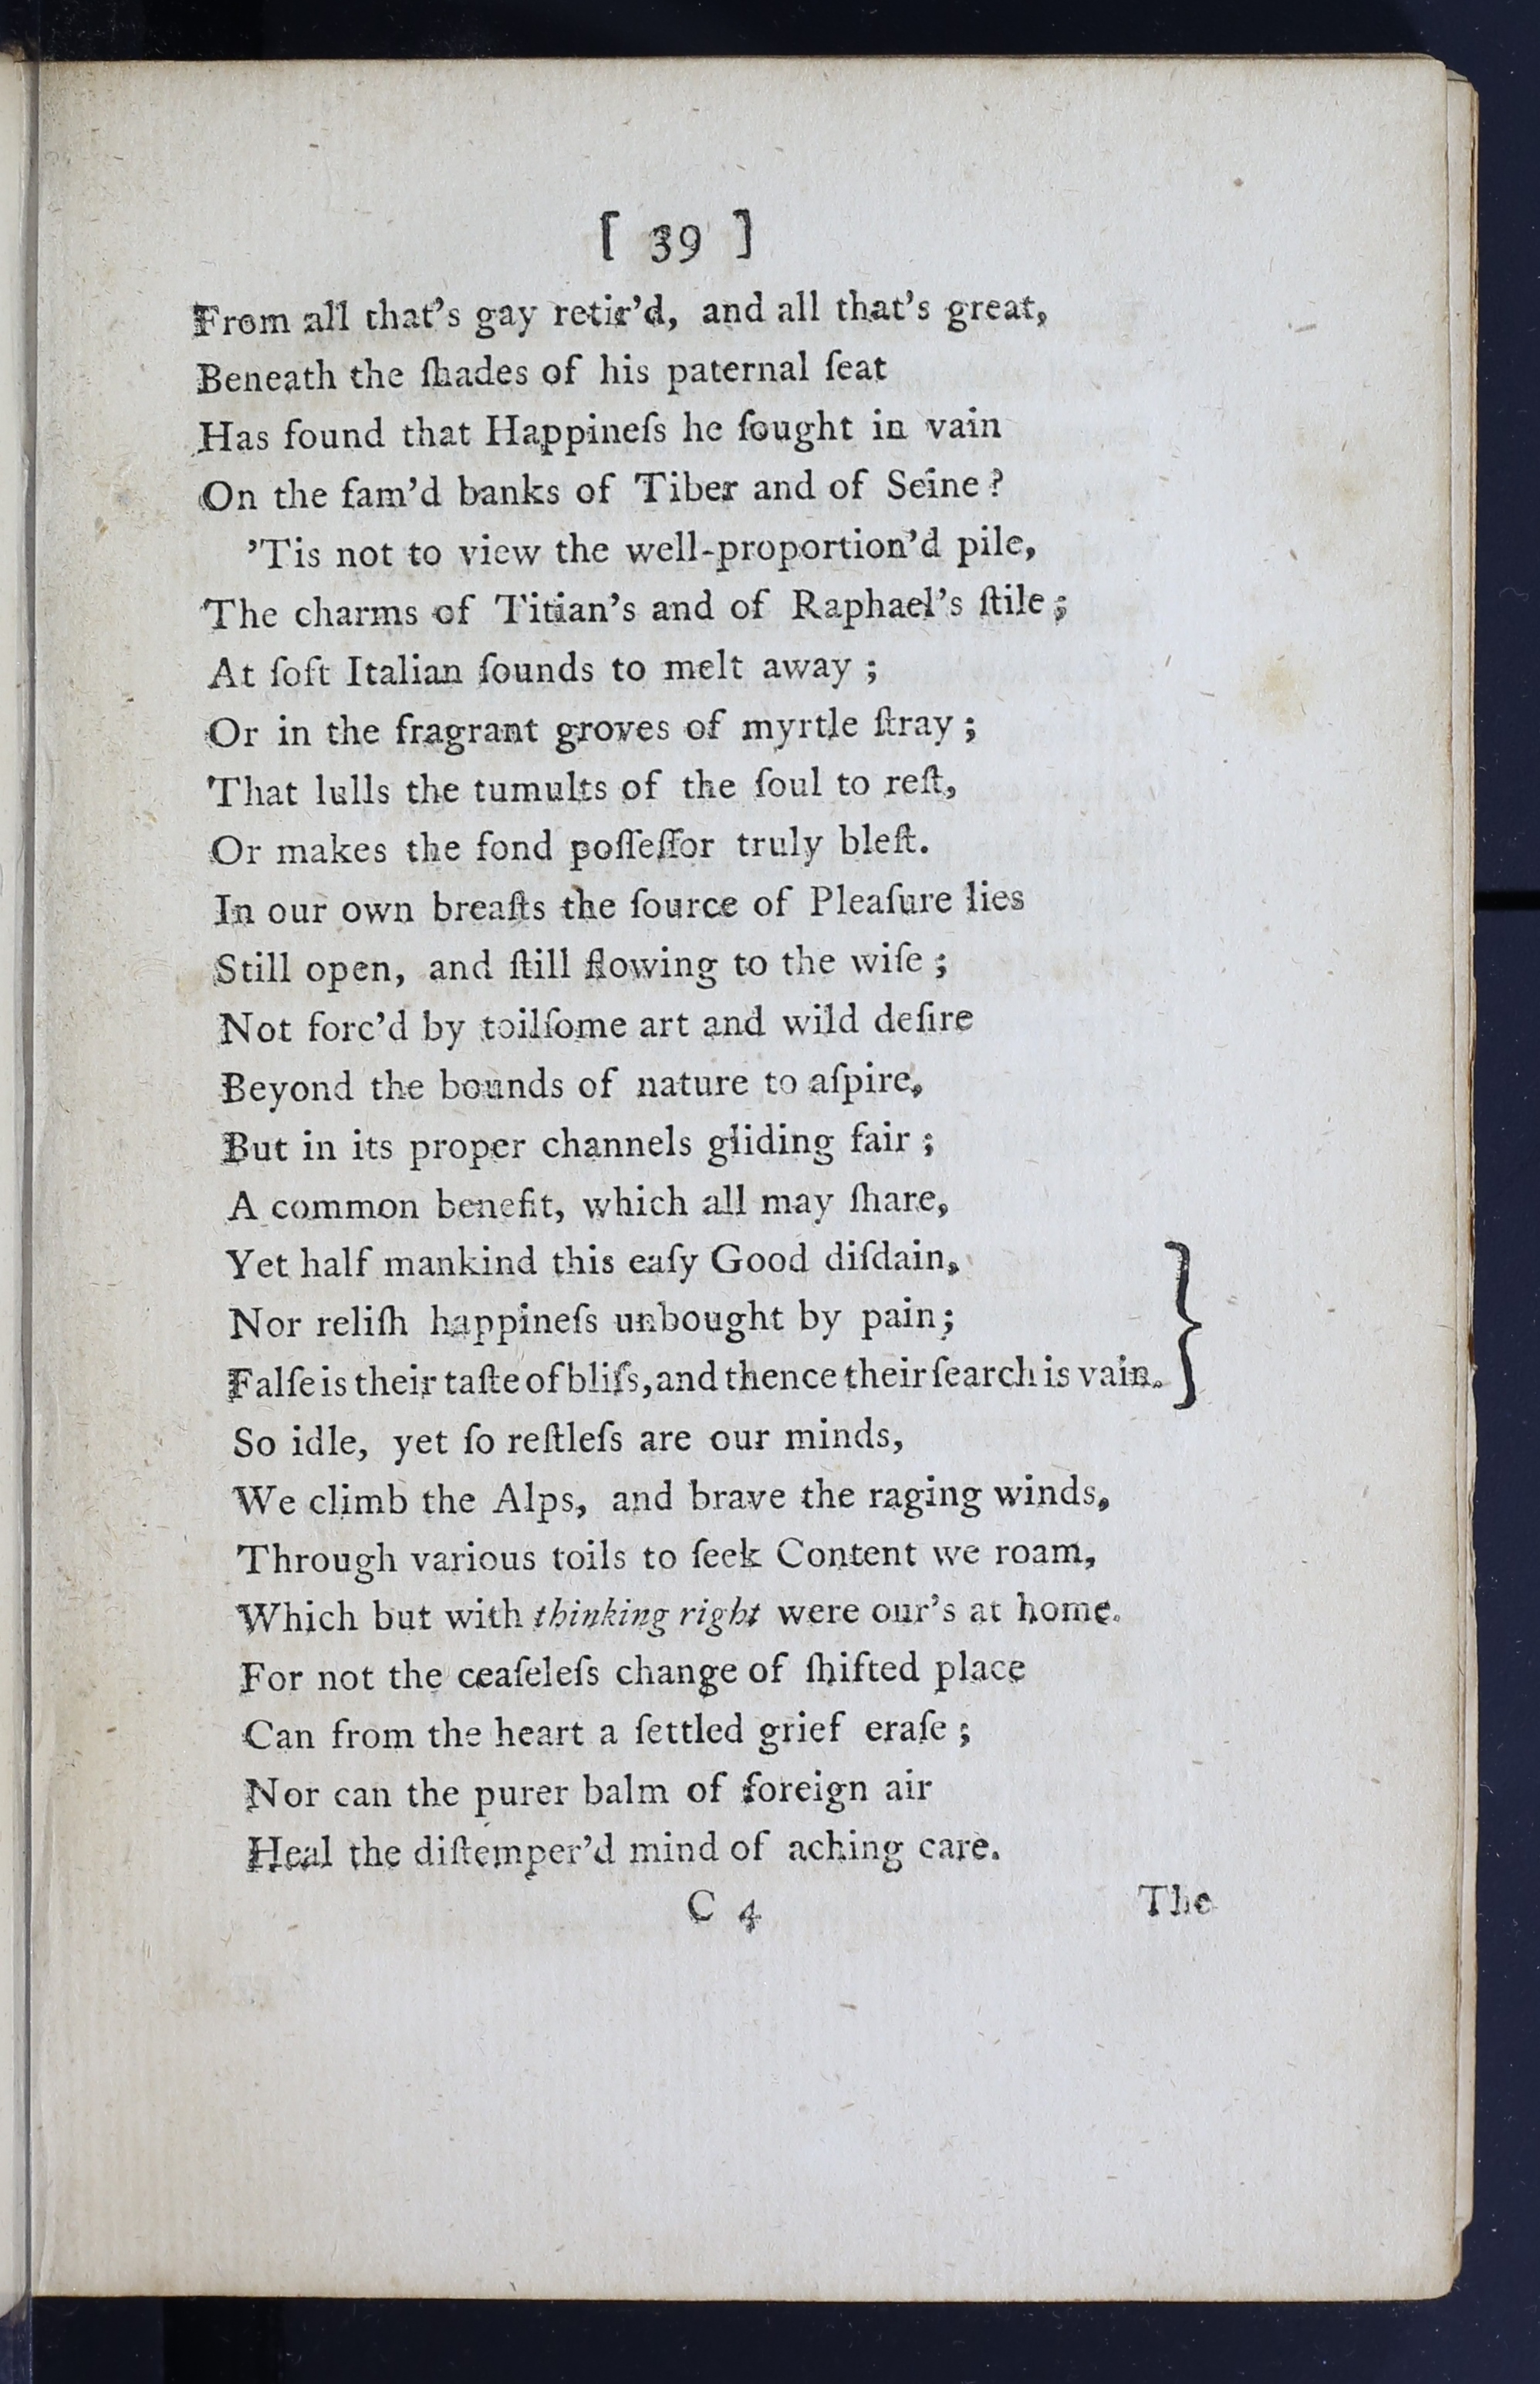 [ 39 ]
From all that's gay retir'd, and all that's great,
Beneath the ſhades of his paternal ſeat
Has found that Happineſs he ſought in vain
On the fam'd banks of Tiber and of Seine?
'Tis not to view the well-proportion'd pile,
The charms of Titian's and of Raphael's ſtile;
At ſoft Italian ſounds to melt away;
Or in the fragrant groves of myrtle ſtray;
That lulls the tumults of the ſoul to reſt,
Or makes the fond poſſeſſor truly bleſt.
In our own breaſts the ſource of Pleaſure lies
Still open, and ſtill flowing to the wiſe;
Not forc'd by toilſome art and wild deſire
Beyond the bounds of nature to aſpire,
But in its proper channels gliding fair;
A common benefit, which all may ſhare,
Yet half mankind this eaſy Good diſdain,
Nor reliſh happineſs unbought by pain;
Falſe is their taſte of bliſs, and thence their ſearch is vain.
So idle, yet ſo reſtleſs are our minds,
We climb the Alps, and brave the raging winds,
Through various toils to ſeek Content we roam,
Which but with thinking right were our's at home.
For not the ceaſeleſs change of ſhifted place
Can from the heart a ſettled grief eraſe;
Nor can the purer balm of foreign air
Heal the diſtemper'd mind of aching care.
C 4 The